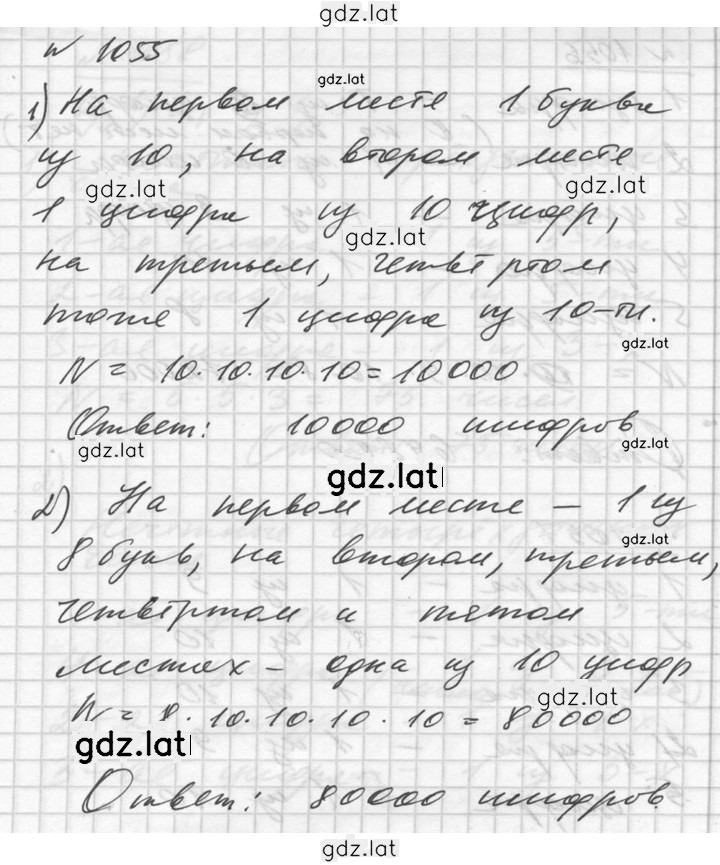 gdz.lat
№ 1055
gdz.lat
1) На первом месте 1 буква
из 10, на втором месте
gdz.lat gdz.lat
1 цифра из 10 цифр,
gdz.lat
на третьем, четвёртом
тоже 1 цифра из 10-ти.
gdz.lat
N = 10·10·10·10=10000
Ответ: 10000 шифров
gdz.lat gdz.lat
gdz.lat
2) На первом месте – 1 из
gdz.lat
8 букв, на втором, третьем,
четвёртом и пятом
местах – одна из 10 цифр
gdz.lat
N = 8·10·10·10·10 = 80000
gdz.lat
Ответ: 80000 шифров
gdz.lat